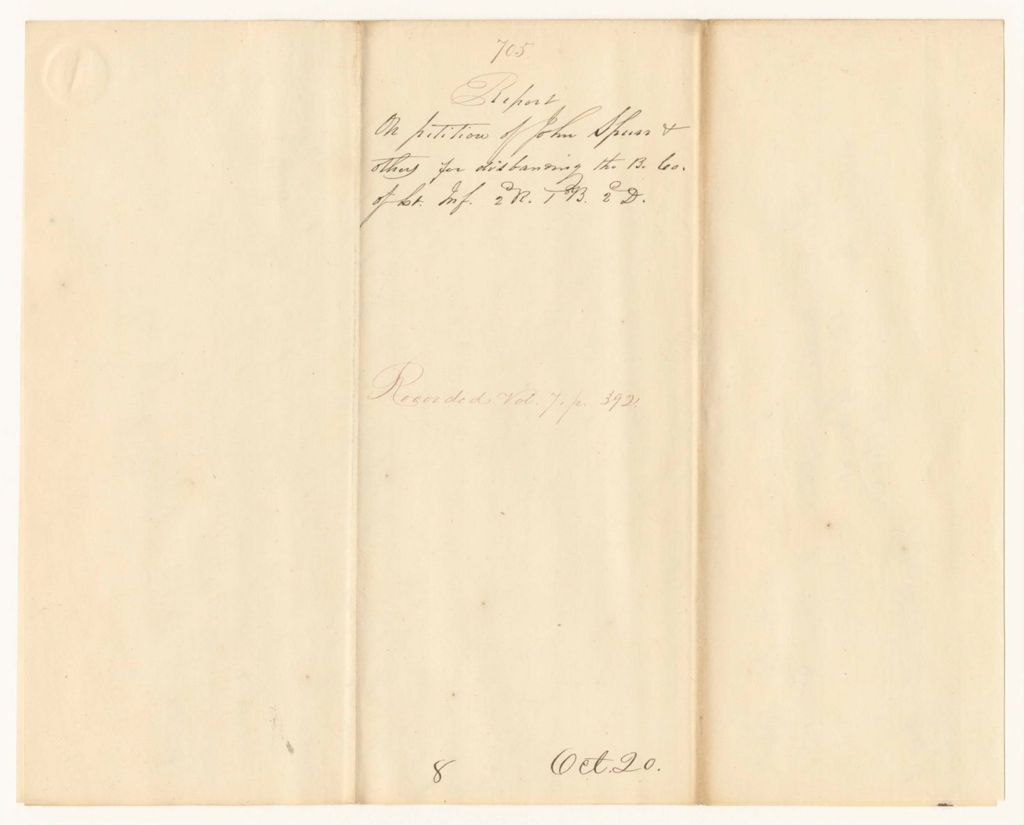 705
Report
On petition of John Spurr &
others for disbanding the B. Co.
of Lt. Inf. 2d R. 1st B. 2d D.
Recorded Vol. 7. p. 392.
8 Oct. 20.